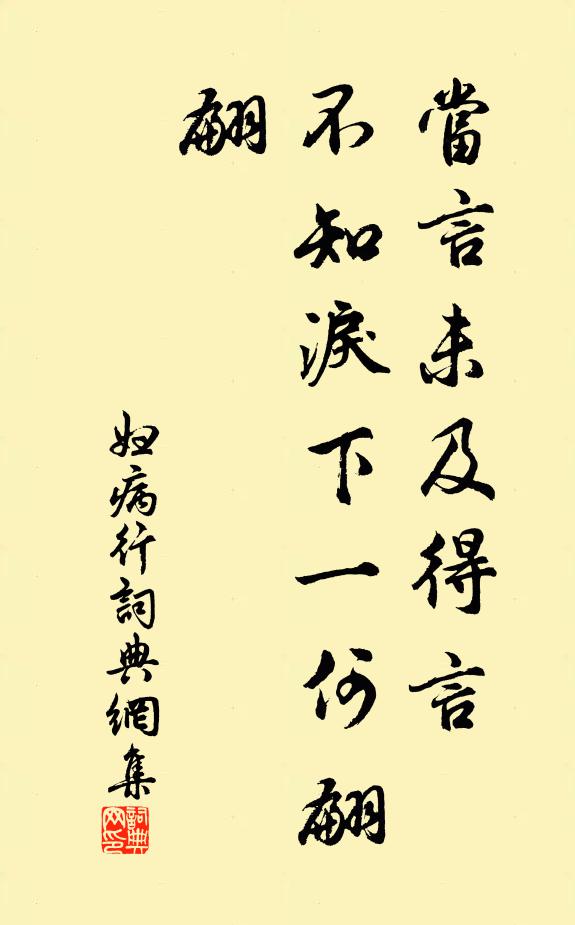 當言未及得言
不知淚下一何翩
翩
妇病行詞典網集
詞典
网印